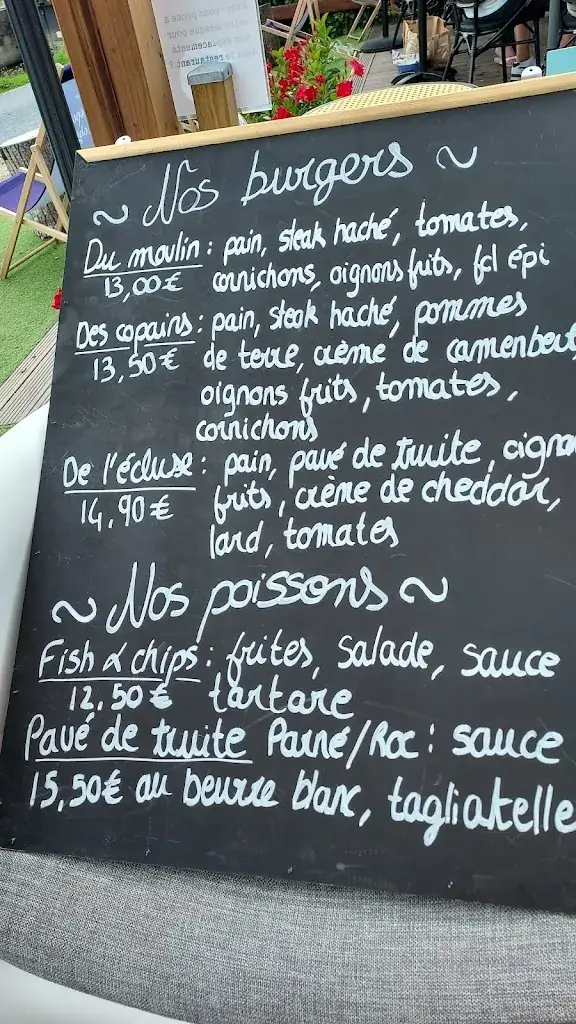 restaurant ?
~ Nos burgers ~
Du moulin : pain, steak haché, tomates,
13,00 € cornichons, oignons frits, fcl épi
Des copains : pain, steak haché, pommes
13,50 € de terre, crème de camembert,
oignons frits, tomates,
cornichons
De l'écluse : pain, pavé de truite, oigno
14,90 € frits, crème de cheddar,
lard, tomates
~ Nos poissons ~
Fish & chips : frites, salade, sauce
12,50 € tartare
Pavé de truite Pané/Roc : sauce
15,50 € au beurre blanc, tagliatelle